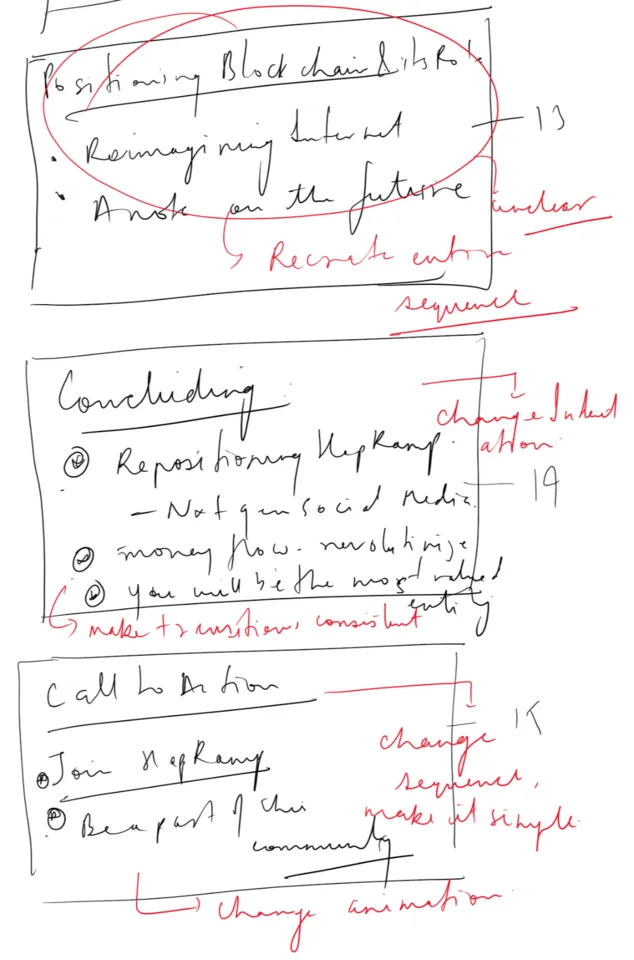 Positioning Blockchain & its Role
• Reimagining Internet
13
• A note on the future
unclear
Recreate entire
sequence
Concluding
change Indent
ation
Repositioning HapRamp
— Next gen social Media
14
money flow - revolutionize
You will be the most valued
entity
make transitions consistent
Call to Action
15
change
sequence,
make it simple
Join HapRamp
Be a part of this
community
change animation